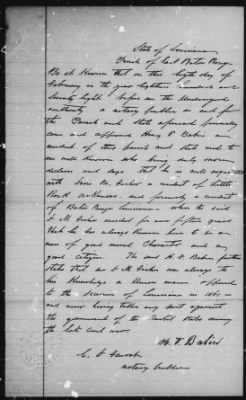 State of Louisiana
Parish of East Baton Rouge
Be it Known that on this eighth day of
February in the year Eighteen hundred and
Seventy Eight before me the Undersigned
authority a notary public in and for
the Parish and State aforesaid personally
came and appeared Henry T. Babin a
resident of this parish and State and to
me well Known who being duly sworn
declares and says that he is well acquainted
with a resident of Little
Rock Arkansas and formerly a resident
of Baton Rouge Louisiana where he said
resided for over fifteen years
that he has always Known him to be a
man of good moral Character and any
good citizen. The said H. T. Babin further
states that was always to
his Knowledge a Union man opposed
to the Secession of Louisiana in 1861 and
and never having taken any part against
the government of the United States during
the late Civil war.
H. T. Babin
notary public